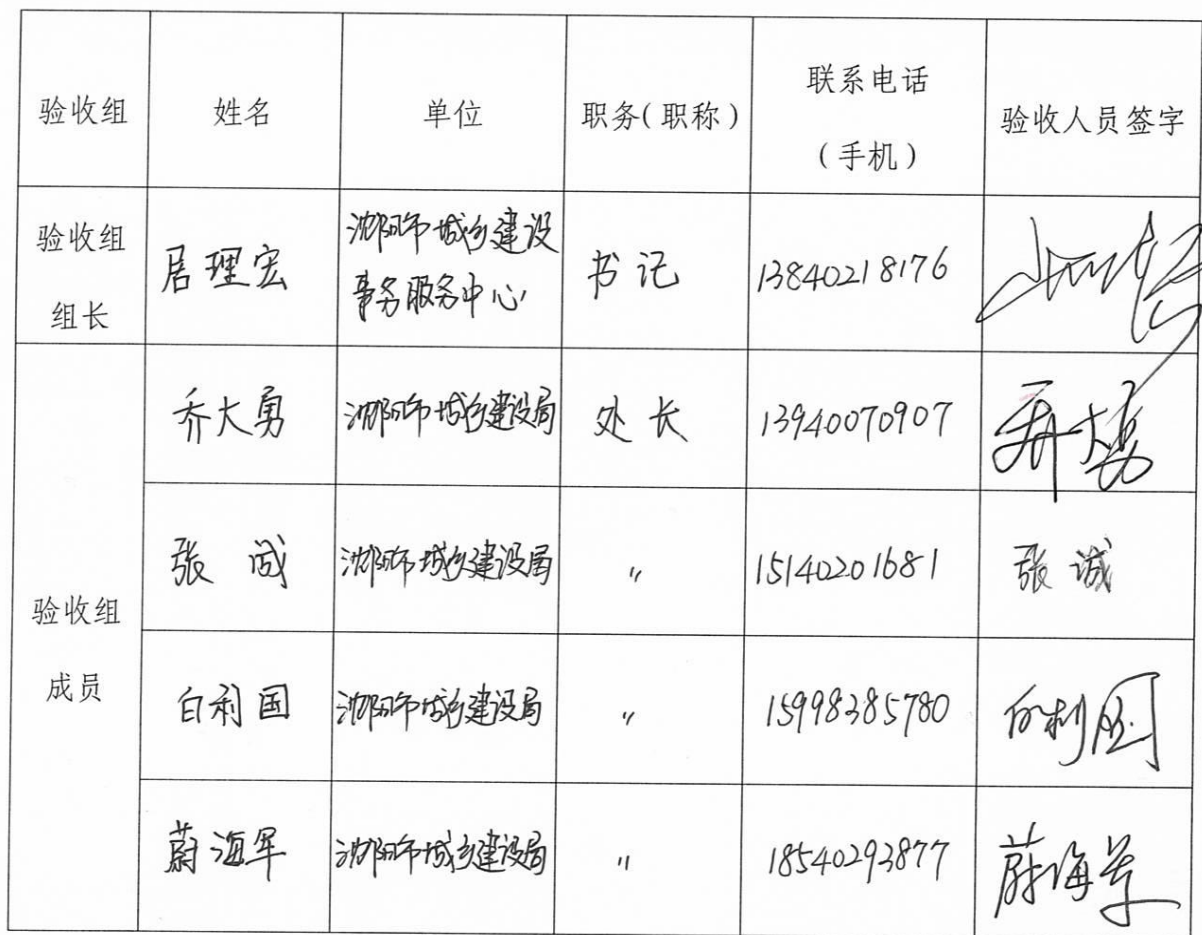 验收组 姓名 单位 职务(职称) 联系电话(手机) 验收人员签字
验收组组长 居理宏 沈阳市城乡建设事务服务中心 书记 13840218176
验收组成员
乔大勇 沈阳市城乡建设局 处长 13940070907 乔大勇
张诚 沈阳市城乡建设局 〃 15140201681 张诚
白利国 沈阳市城乡建设局 〃 15998385780 白利国
蔚海军 沈阳市城乡建设局 〃 18540293877 蔚海军